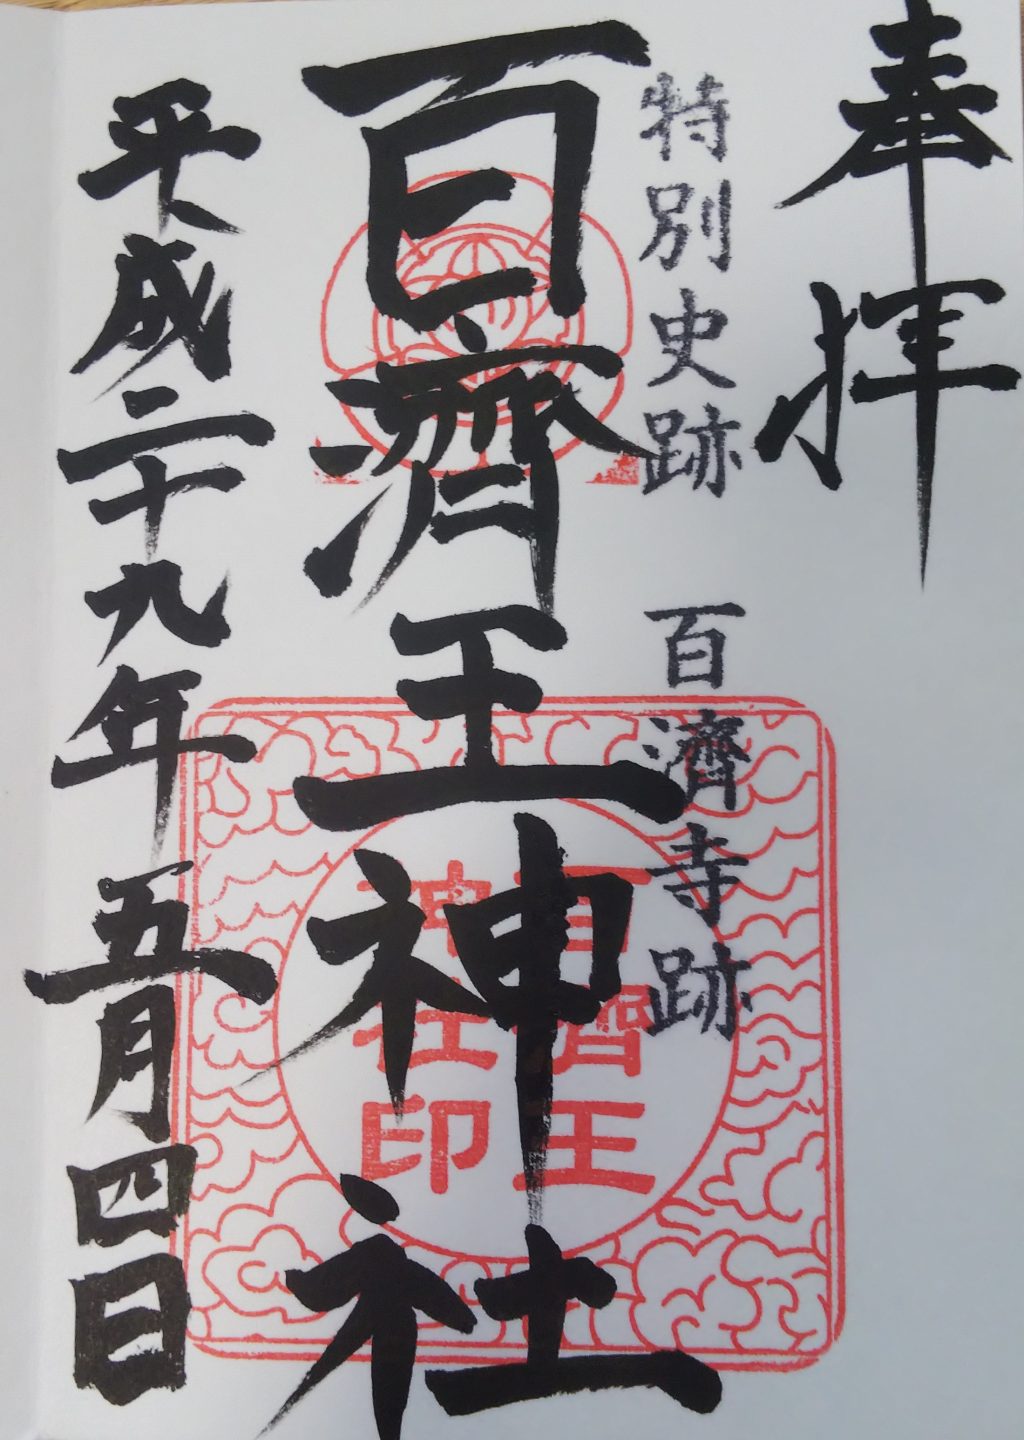 奉拝
特別史跡 百濟寺跡
百濟王神社
百濟王
神社印
平成二十九年五月四日